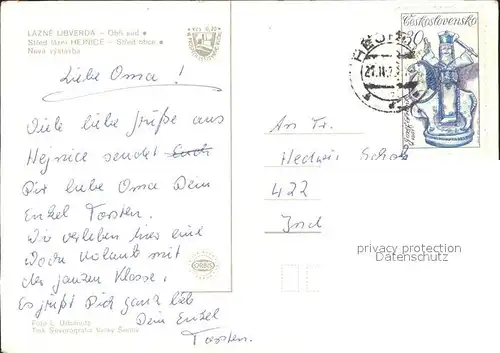 LÁZNĚ LIBVERDA – Obří sud
Střed lázní HEJNICE – Střed obce
Nová výstavba
Liebe Oma!
Viele liebe Grüße aus
Hejnice sendet Euch
Dir liebe Oma Dein
Enkel Torsten.
Wir verleben hier eine
Woche Urlaub mit
der ganzen Klasse.
Es grüßt Dich ganz lieb
Dein Enkel
Torsten.
Foto L.
Tisk Severografia
ORBIS
Československo
An Fr.
Hedwig
422
privacy protection
Datenschutz